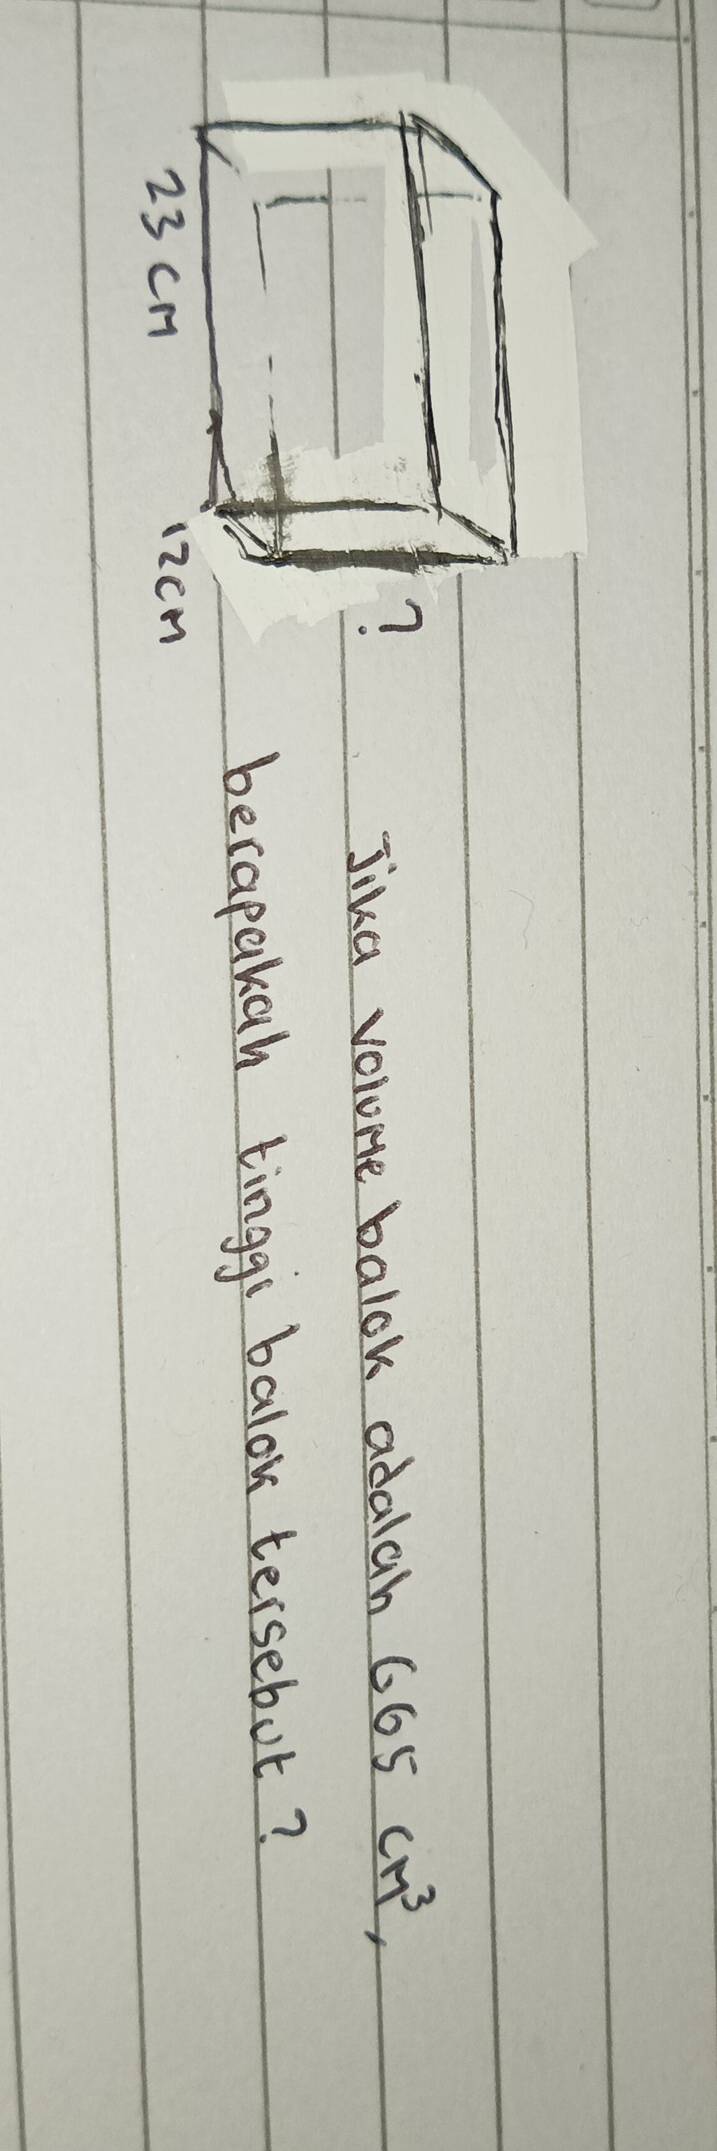 ?
23 cm
12cm
Jika volume balok adalah 665 cm³,
berapakah tinggi balok tersebut?